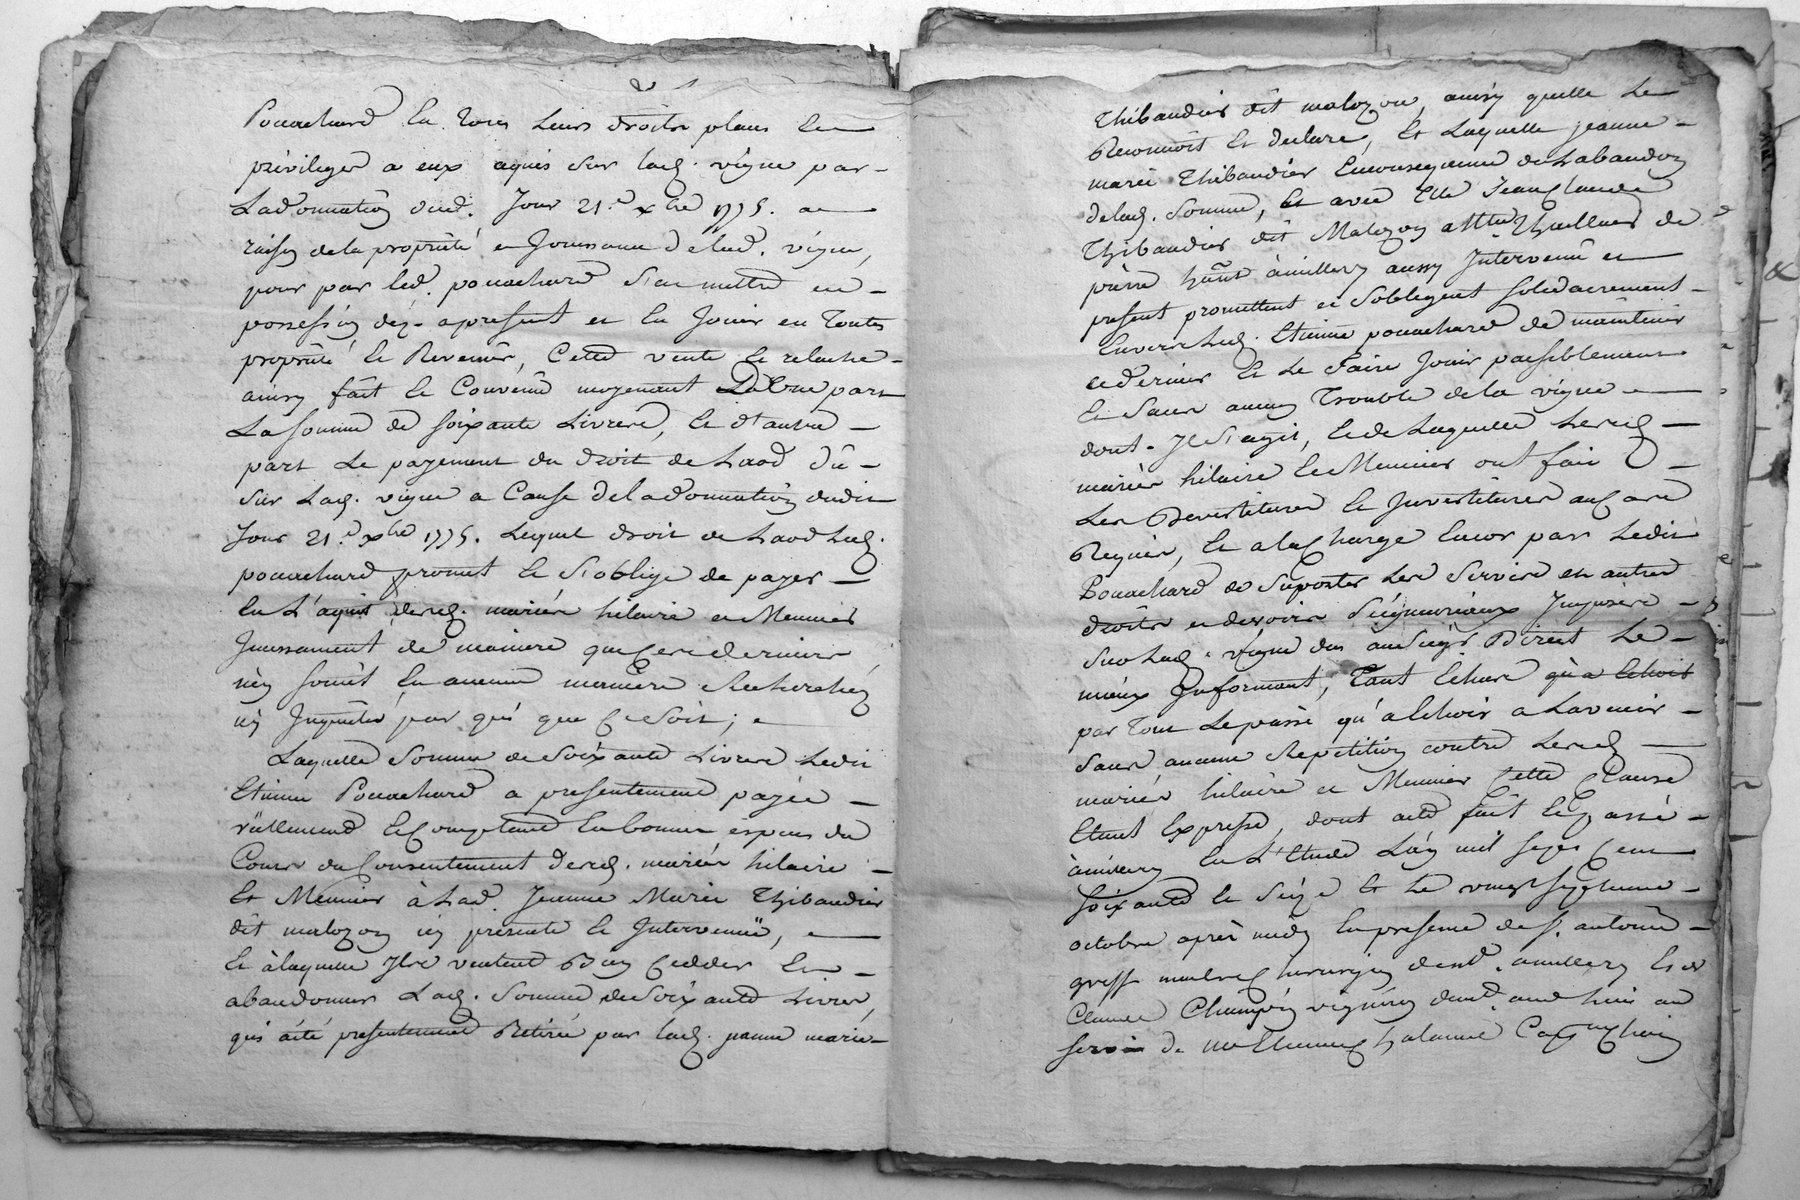 Pouachard En Tous Leurs droits plans Les
privileges a eux aquis sur lad. vigne par
Ladonnation dud. Jour 21.e xbre 1775. a
raison de la proprieté et Jouissance de lad. vigne,
pour par led. pouachard s'en mettre en
possession dez apresent et En Jouir en Toutes
proprieté Et Revenus, Cette vente Et relache
ainsy fait Et Convenu moyenant D'une part
La somme de soixante Livres, Et d'autre
part Le payement du droit de Laod Dû
sur Lad. vigne a Cause de la donnation dudit
Jour 21.e xbre 1775. Lequel droit de Laod Led.
pouachard promet Et s'oblige de payer
En L'aquit desd. mariés hilaire et Meunier
Jncessament de maniere que Ces derniers
n'en soient En aucune maniere Recherchés
ny Jnquietés par qui que Ce soit; et
Laquelle somme de soixante Livres Ledit
Etienne Pouachard a presentement payée
réellement Et Comptant En bonnes espces du
Cours du Consentement desd. mariés hilaire
Et Meunier à Lad. Jeanne Marie Thibaudier
dit malozon icy presente Et Intervenüe, et
Et à laquelle Ils veulent Bien Cedder Et
abandonner Lad. somme de soixante Livres,
qui a été presentement Retirée par lad. jeanne marie
Thibaudier dit malozon, ainsy quelle Le
Reconnoit Et declare, Et Laquelle jeanne
marie Thibaudier En consequence de Labandon
de lad. somme, Et avec Elle Jean Claude
Thibaudier dit Malozon de
pierre hãnt à millery aussy Intervenu et
present promettent et s'obligent solidairement
Envers Led. Etienne pouachard de maintenir
ce dernier Et Le Faire Jouir paisiblement
Et sans aucun Trouble de la vigne
dont Il s'agit, Et de Laquelle Lesd.
mariés hilaire Et Meunier ont fait
Les Devestitures Et Jnvestitures au Cas
Requis, Et a la Charge Encor par Ledit
Pouachard de suporter Les servis et autres
droits et devoirs seigneuriaux Jmposés
sur Lad. vigne dus au seig.r Direct Le
mieux Jnformant, Tant Echus qu'a Echoir
par Tout Le passé qu'a Echoir a L'avenir
sans aucune Repetition contre Lesd.
mariés hilaire et Meunier Cette Clause
Etant Expresse, dont acte fait Et passé
à millery En L'Etude L'an mil sept Cent
soixante et seize Et Le vingt septieme
octobre après midy En presence de s.r antoine
greff maitre Chirurgien dud. millery Et de
Claude Champin vigneron dud.
de me Etienne